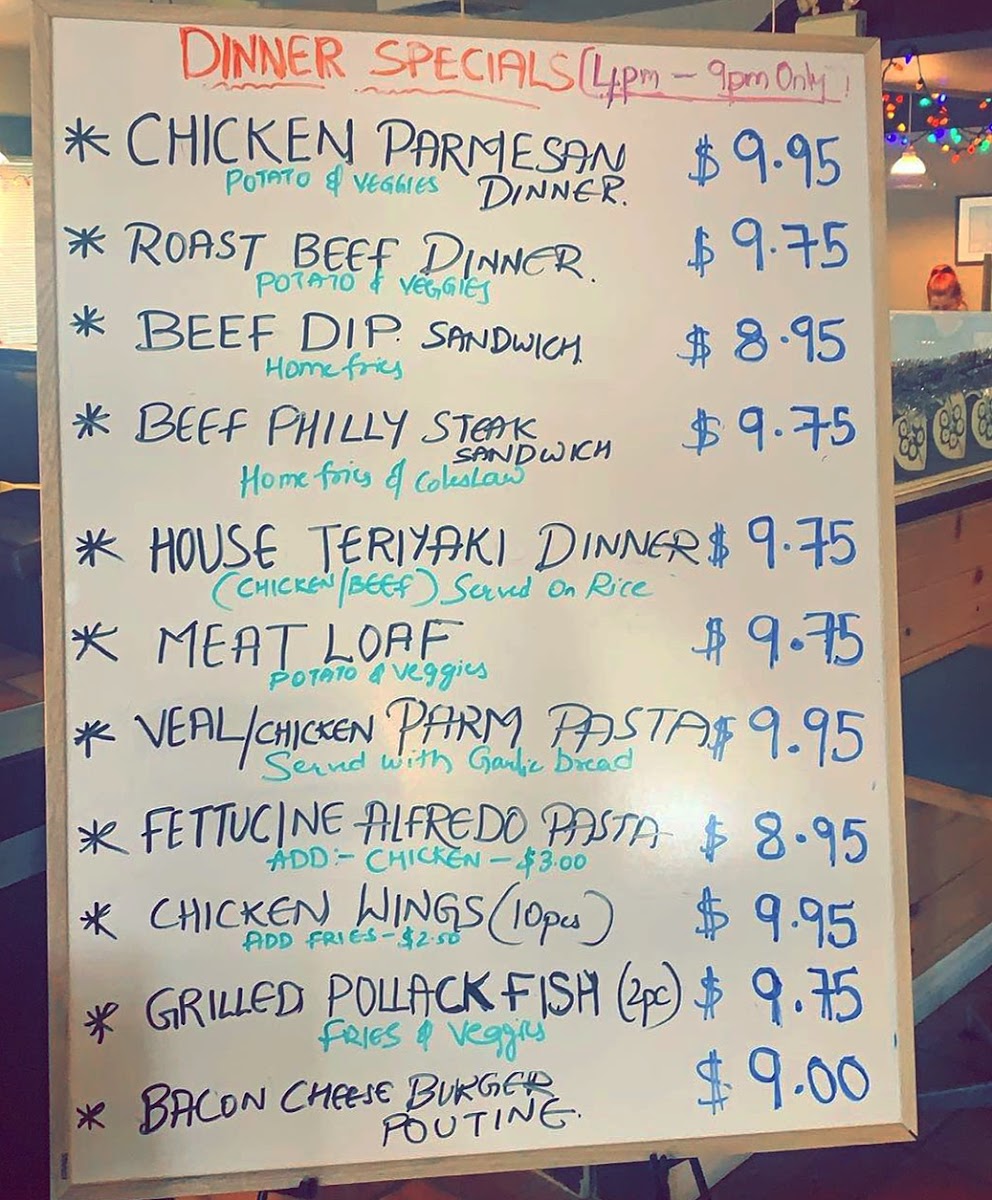 DINNER SPECIALS (4pm - 9pm Only!
* CHICKEN PARMESAN $9.95
POTATO & VEGGIES DINNER.
* ROAST BEEF DINNER. $9.75
POTATO & VEGGIES
* BEEF DIP. SANDWICH $8.95
Home fries
* BEEF PHILLY STEAK $9.75
SANDWICH
Home fries & ColesLaw
* HOUSE TERIYAKI DINNER $9.75
(CHICKEN/BEEF) Served On Rice
* MEAT LOAF $9.75
POTATO & Veggies
* VEAL/CHICKEN PARM PASTA $9.95
Served with Garlic bread
* FETTUCINE ALFREDO PASTA $8.95
ADD:- CHICKEN - $3.00
* CHICKEN WINGS (10pcs) $9.95
ADD FRIES - $2.50
* GRILLED POLLACK FISH (2pc) $9.75
FRIES & Veggies
* BACON CHEESE BURGER $9.00
POUTINE.